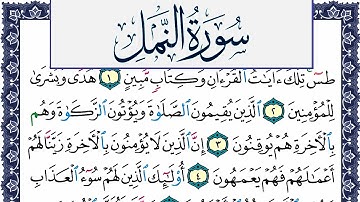 سورة النمل
طسٓ تِلْكَ ءَايَٰتُ ٱلْقُرْءَانِ وَكِتَابٍ مُّبِينٍ ١ هُدًى وَبُشْرَىٰ
لِلْمُؤْمِنِينَ ٢ ٱلَّذِينَ يُقِيمُونَ ٱلصَّلَوٰةَ وَيُؤْتُونَ ٱلزَّكَوٰةَ وَهُم
بِٱلْءَاخِرَةِ هُمْ يُوقِنُونَ ٣ إِنَّ ٱلَّذِينَ لَا يُؤْمِنُونَ بِٱلْءَاخِرَةِ زَيَّنَّا لَهُمْ
أَعْمَٰلَهُمْ فَهُمْ يَعْمَهُونَ ٤ أُو۟لَٰٓئِكَ ٱلَّذِينَ لَهُمْ سُوٓءُ ٱلْعَذَابِ